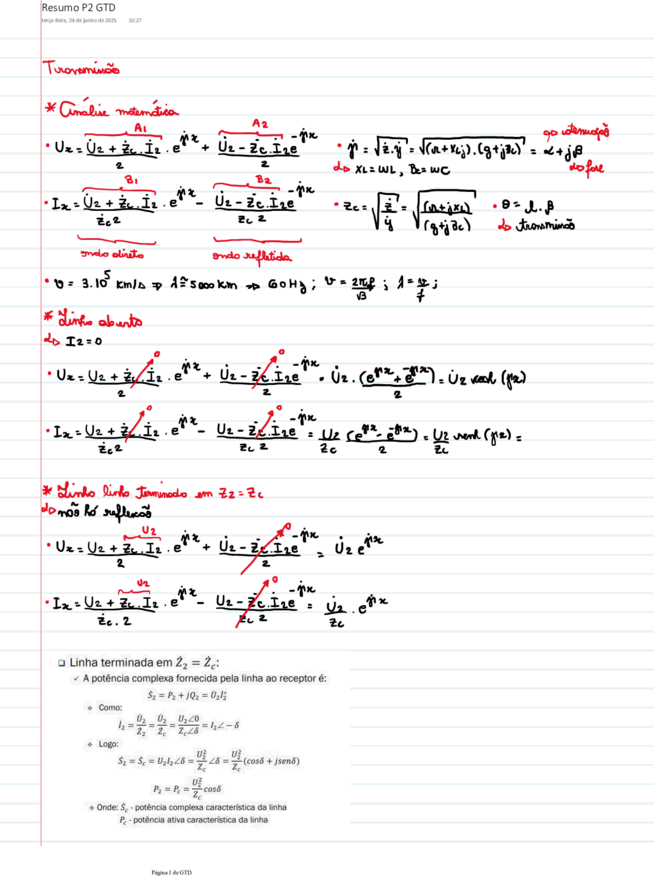 Resumo P2 GTD
terça-feira, 24 de junho de 2025 10:27
Transmissão
* Análise matemática
A1 A2
• Ux = (U̇2 + Żc.İ2)/2 . e^γ̇x + (U̇2 - Żc.İ2)/2 e^-γ̇x • γ̇ = √ż.ẏ = √(r+XLj).(g+jBc) = α+jβ
↳ XL = WL, Bc = WC
B1 B2
• Ix = (U̇2 + Żc.İ2)/(Żc 2) . e^γ̇x - (U̇2 - Żc.İ2)/(Zc 2) e^-γ̇x • Zc = √(ż/ẏ) = √((r+jXL)/(g+jBc)) • θ = l.β
↳ transmissão
onda direta onda refletida
• v = 3.10^5 km/s ⇒ λ ≅ 5000 km ⇒ 60Hz ; v = 2πf/β ; λ = v/f ;
* Linha aberta
↳ I2=0
• Ux = (U2 + Żc.İ2)/2 . e^γ̇x + (U̇2 - Żc.İ2)/2 e^-γ̇x = U̇2 . (e^γ̇x + e^-γ̇x)/2 = U̇2 cosh (γ̇x)
• Ix = (U2 + Żc.İ2)/(Żc 2) . e^γ̇x - (U2 - Żc.İ2)/(Zc 2) e^-γ̇x = U2/Zc (e^γ̇x - e^-γ̇x)/2 = U2/Zc senh (γ̇x) =
* Linha linha terminada em Z2 = Zc
↳ não há reflexão
U2
• Ux = (U2 + Żc.I2)/2 . e^γ̇x + (U̇2 - Żc.İ2)/2 e^-γ̇x = U̇2 e^γ̇x
U2
• Ix = (U2 + Zc.I2)/(Żc.2) . e^γ̇x - (U2 - Żc.İ2)/(Zc 2) e^-γ̇x = U̇2/Zc . e^γ̇x
❑ Linha terminada em Ż₂ = Żc:
✓ A potência complexa fornecida pela linha ao receptor é:
Ṡ₂ = P₂ + jQ₂ = U̇₂İ₂*
❖ Como:
İ₂ = U̇₂/Ż₂ = U̇₂/Żc = U₂∠0/Zc∠δ = I₂∠ − δ
❖ Logo:
Ṡ₂ = Ṡc = U₂I₂∠δ = U₂²/Zc ∠δ = U₂²/Zc (cosδ + jsenδ)
P₂ = Pc = U₂²/Zc cosδ
❖ Onde: Ṡc - potência complexa característica da linha
Pc - potência ativa característica da linha
Página 1 de GTD